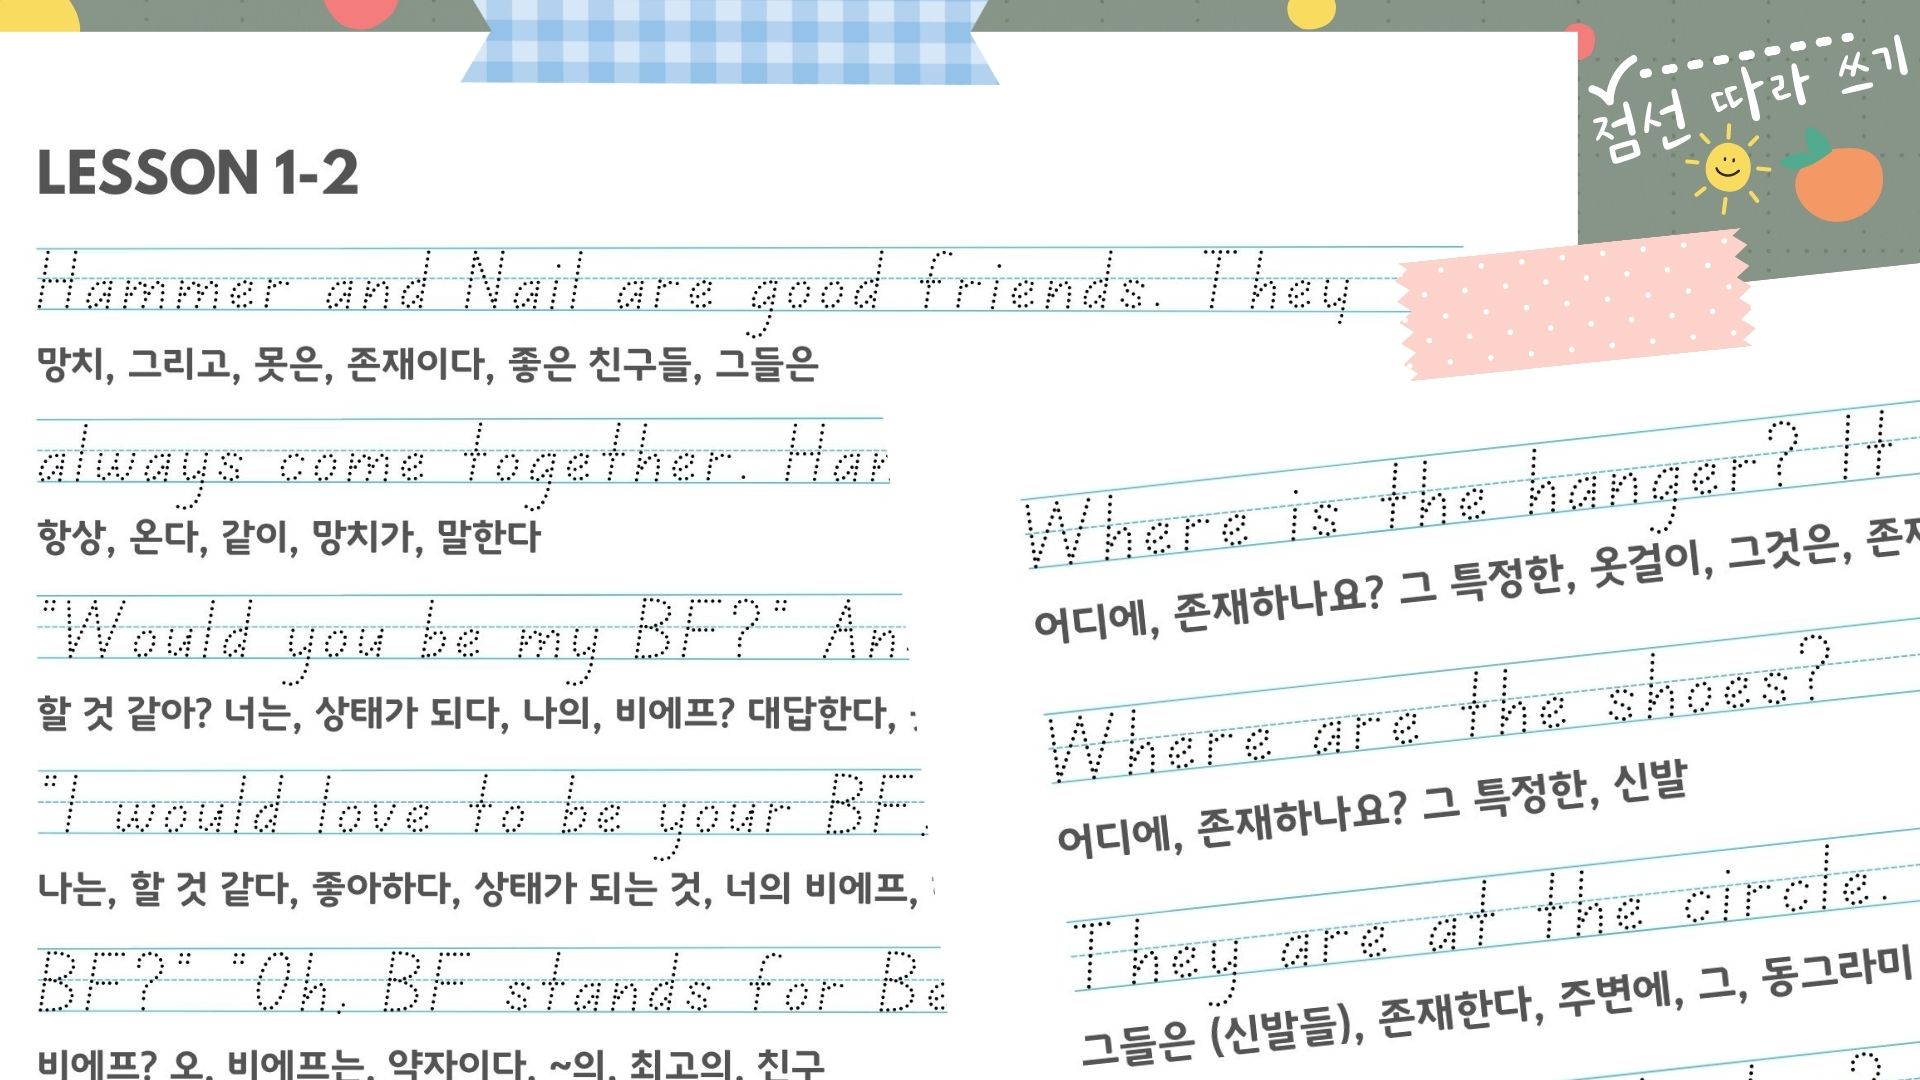 점선 따라 쓰기
LESSON 1-2
Hammer and Nail are good friends. They
망치, 그리고, 못은, 존재이다, 좋은 친구들, 그들은
always come together. Ham
항상, 온다, 같이, 망치가, 말한다
"Would you be my BF?" An
할 것 같아? 너는, 상태가 되다, 나의, 비에프? 대답한다,
"I would love to be your BF.
나는, 할 것 같다, 좋아하다, 상태가 되는 것, 너의 비에프,
BF?" "Oh, BF stands for Be
비에프? 오, 비에프는, 약자이다, ~의, 최고의, 친구
Where is the hanger? It
어디에, 존재하나요? 그 특정한, 옷걸이, 그것은, 존재
Where are the shoes?
어디에, 존재하나요? 그 특정한, 신발
They are at the circle.
그들은 (신발들), 존재한다, 주변에, 그, 동그라미